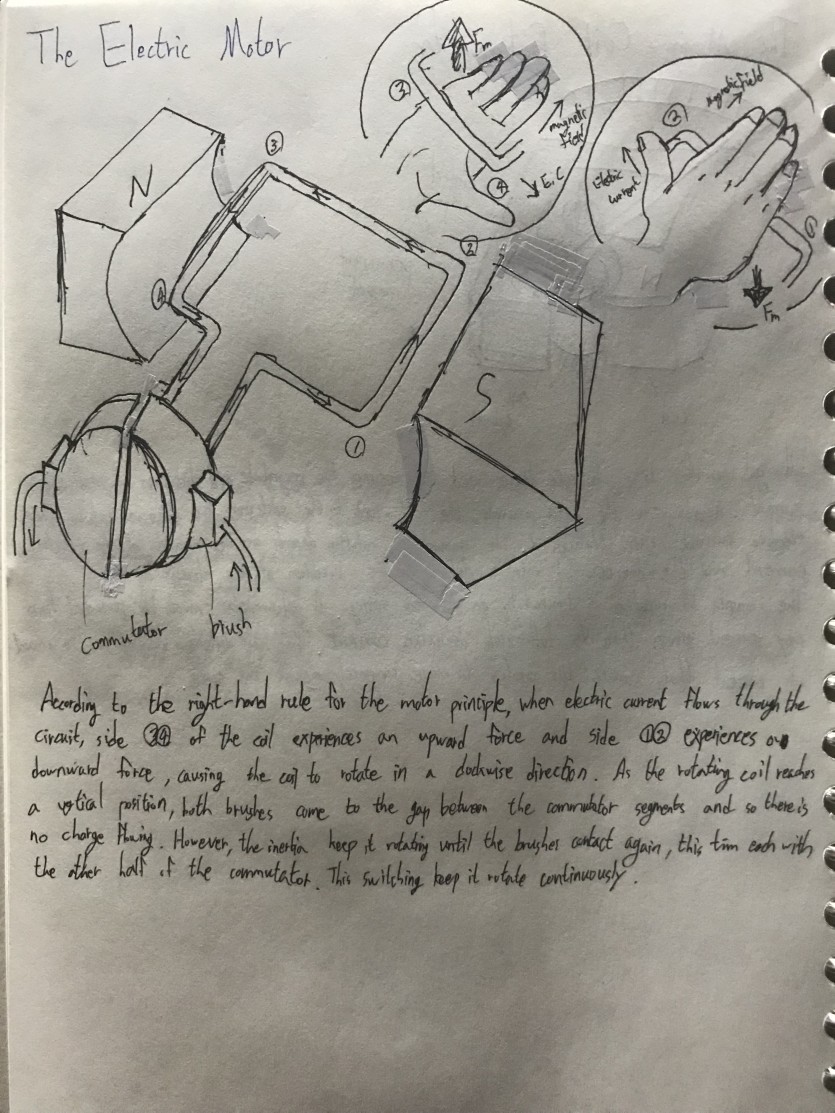 The Electric Motor
Fm
③
magnetic
field
④
E.C
magnetic field
②
Electric
current
①
Fm
N
③
②
④
S
①
commutator
brush
According to the right-hand rule for the motor principle, when electric current flows through the
circuit, side ③④ of the coil experiences an upward force and side ①② experiences a
downward force, causing the coil to rotate in a clockwise direction. As the rotating coil reaches
a vertical position, both brushes come to the gap between the commutator segments and so there is
no charge flowing. However, the inertia keep it rotating until the brushes contact again, this tim each with
the other half of the commutator. This switching keep it rotate continuously.